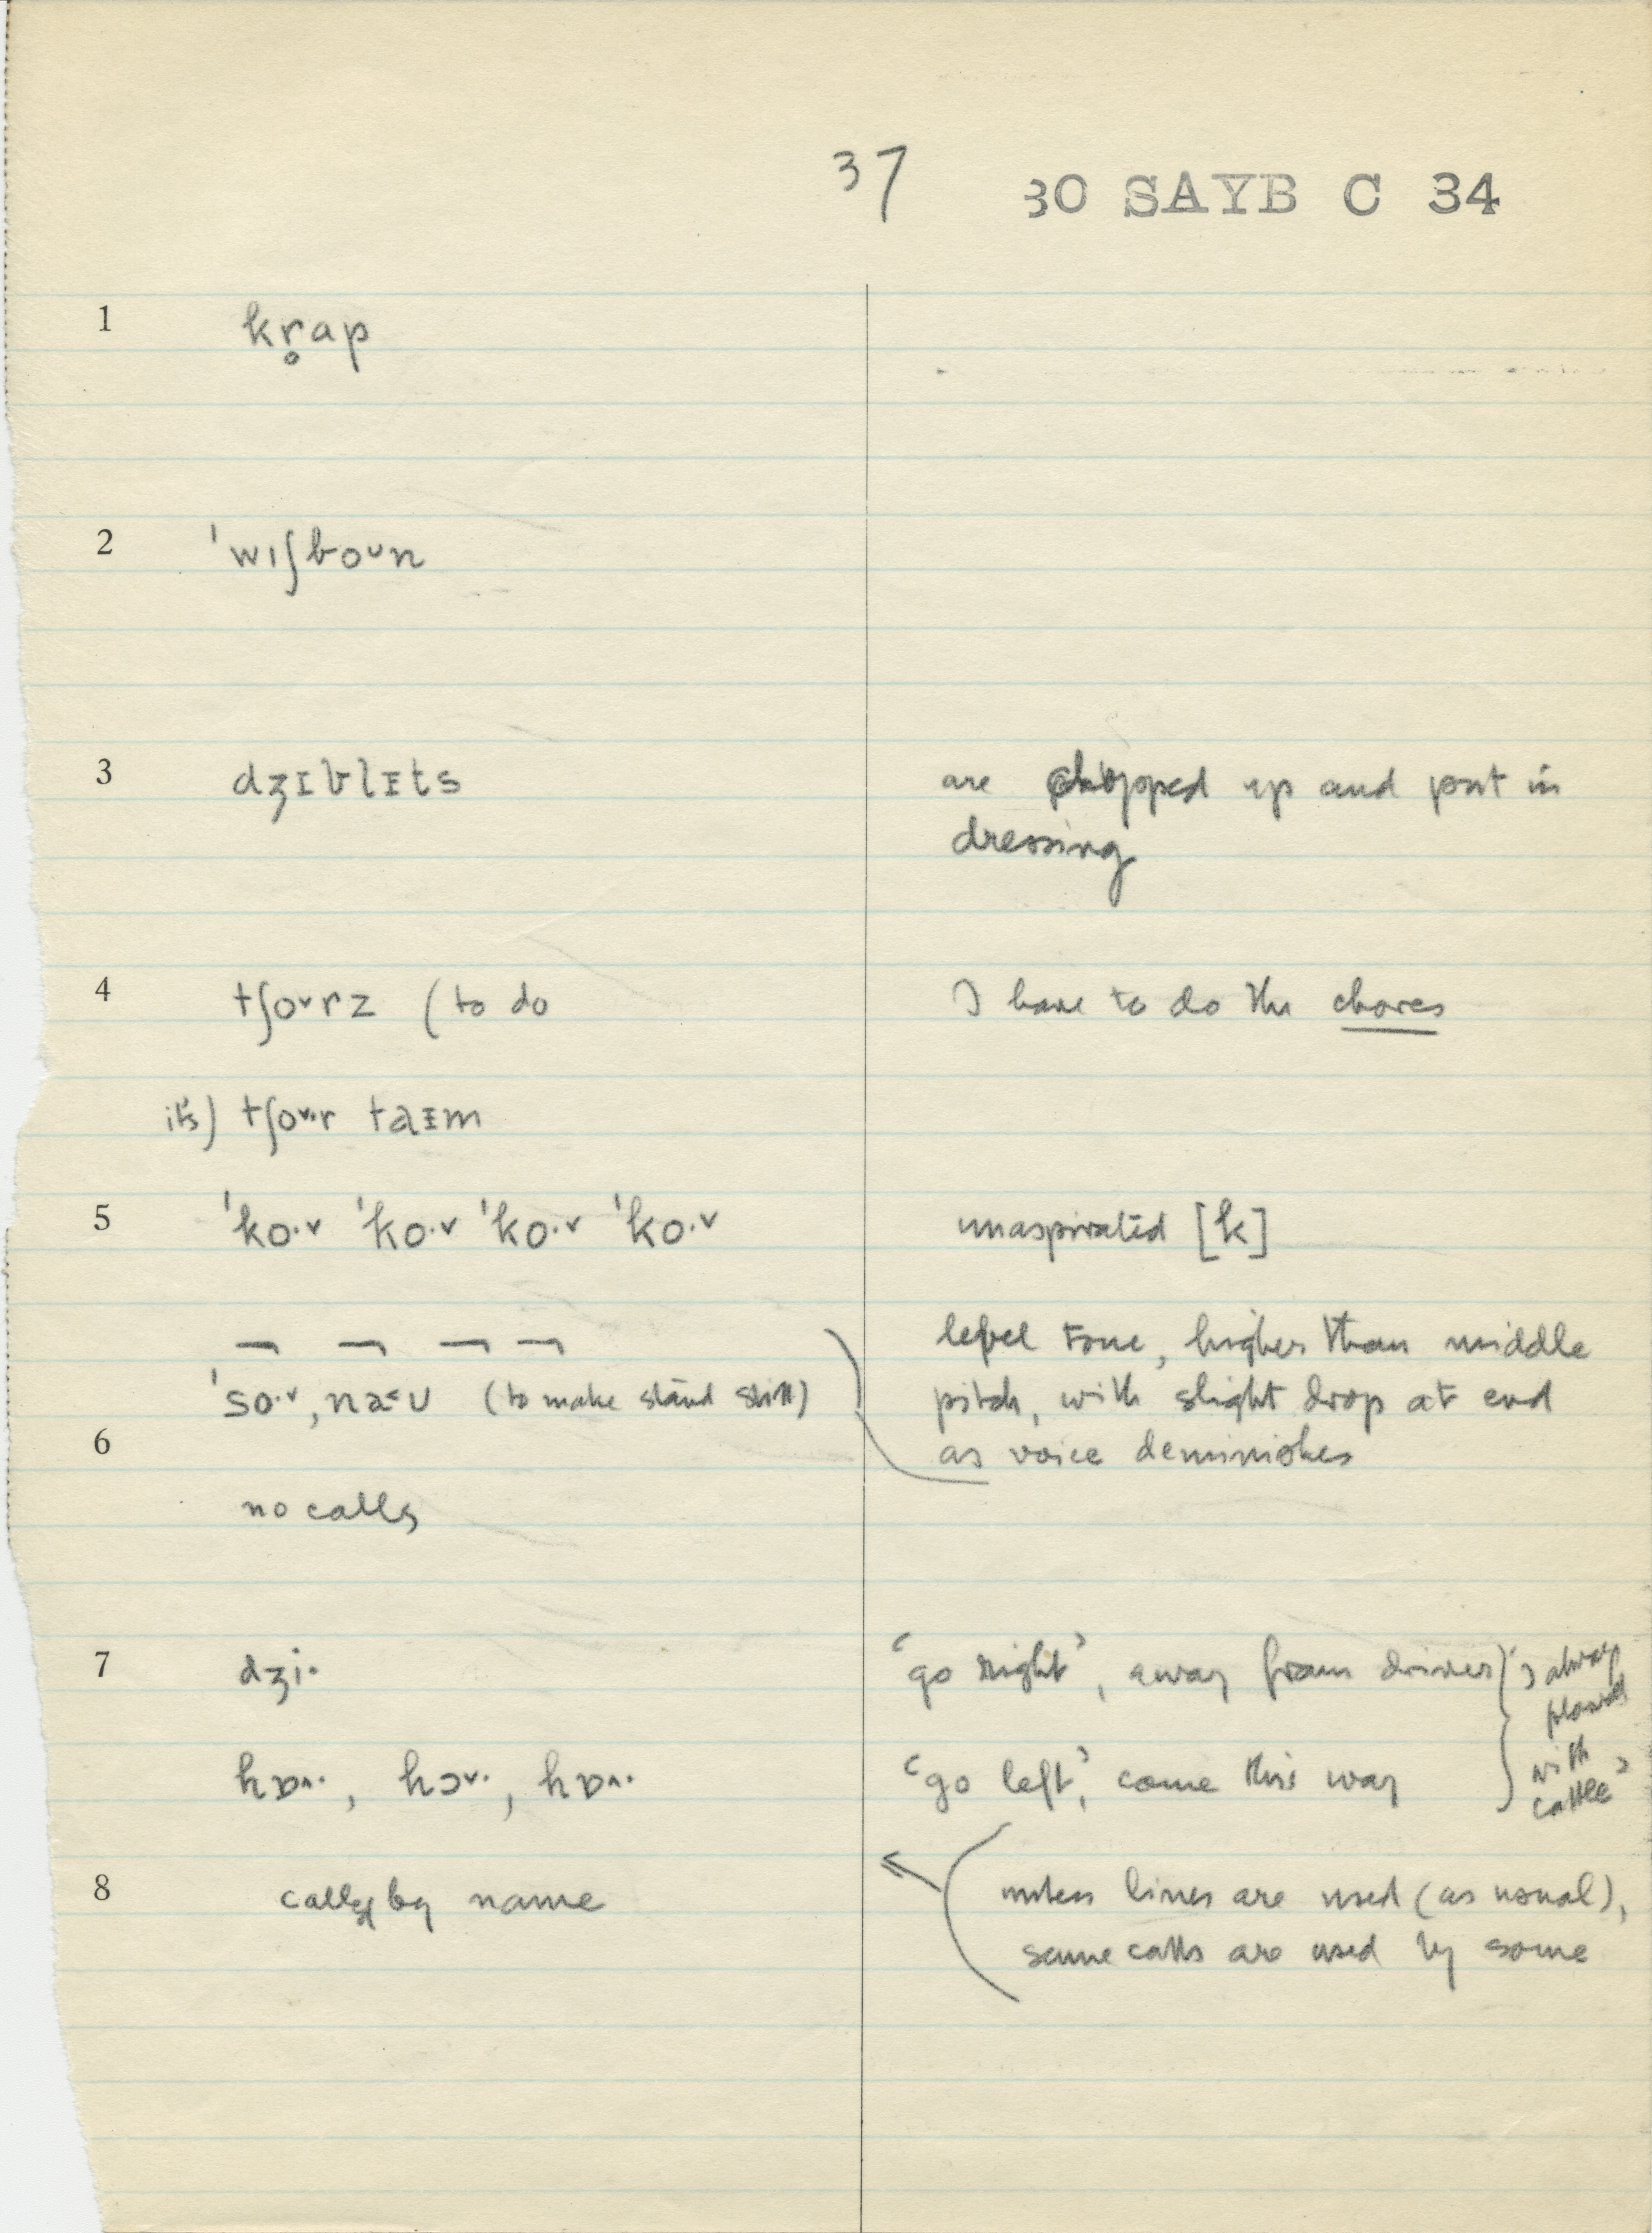 37 30 SAYB C 34
1 kr̥ap
2 ˈwɪʃboᴜn
3 dʒɪblɪts are chopped up and put in
dressing
4 tʃo˅rz (to do I have to do the chores
it's) tʃo˅·r taɪm
5 ˈko·˅ ˈko·˅ ˈko·˅ ˈko·˅ unaspirated [k]
level tone, higher than middle
ˈso·˅, (to make stand still) pitch, with slight drop at end
6 as voice deminishes
no calls
7 dʒi· ‘go right’, away from driver } ‘I always
plowed
with
cattle’
hɒ^·, hɔ˅·, hɒ^· ‘go left’, come this way
8 calls by name (unless lines are used (as usual),
same calls are used by some